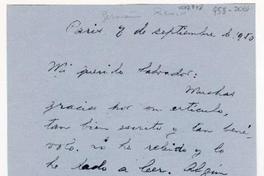 Paris 7 de septiembre de 1950
Mi querido Salvador:
Muchas
gracias por su artículo,
tan bien escrito y tan bené-
volo. Lo he releído y lo
he dado a leer. Algún